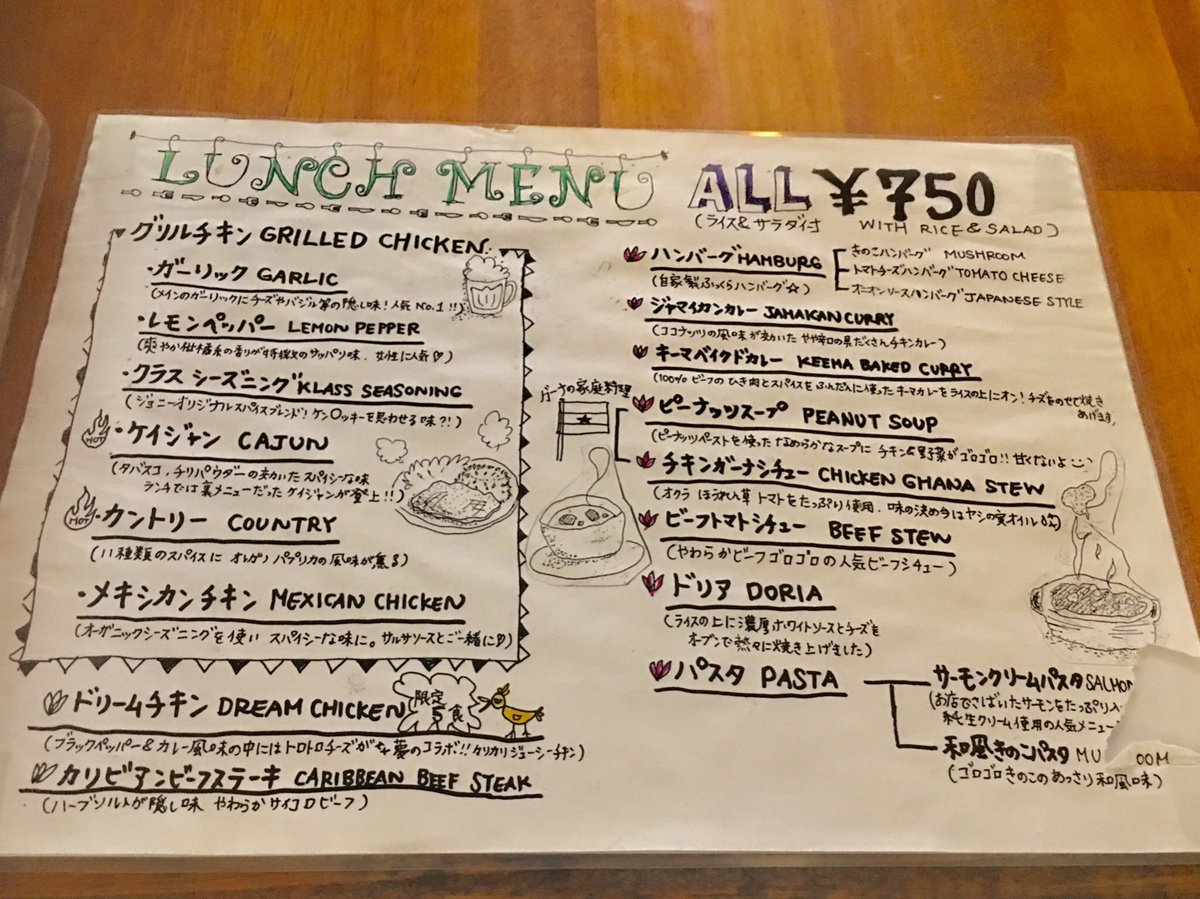 LUNCH MENU
ALL ¥750
(ライス&サラダ付 WITH RICE & SALAD)
グリルチキン GRILLED CHICKEN
・ガーリック GARLIC
(メインのガーリックにチーズやバジル等の隠し味!人気No.1!!)
・レモンペッパー LEMON PEPPER
(爽やか柑橘系の香りが特徴のサッパリ味、女性に人気♡)
・クラスシーズニング KLASS SEASONING
(ジョニーオリジナルスパイスブレンド!ケン〇ッキーを思わせる味?!)
HOT
・ケイジャン CAJUN
(タバスコ、チリパウダーの効いたスパイシーな味
ランチでは裏メニューだったケイジャンが登場!!)
HOT
・カントリー COUNTRY
(11種類のスパイスにオレガノパプリカの風味が薫る)
・メキシカンチキン MEXICAN CHICKEN
(オーガニックシーズニングを使いスパイシーな味に。サルサソースとご一緒に♡)
ドリームチキン DREAM CHICKEN
限定5食
(ブラックペッパー&カレー風味の中にはトロトロチーズが 夢のコラボ!!カリカリジューシーチキン)
カリビアンビーフステーキ CARIBBEAN BEEF STEAK
(ハーブソルトが隠し味 やわらかサイコロビーフ)
ハンバーグ HAMBURG
(自家製ふっくらハンバーグ☆)
きのこハンバーグ MUSHROOM
トマトチーズハンバーグ TOMATO CHEESE
オニオンソースハンバーグ JAPANESE STYLE
ジャマイカンカレー JAMAIKAN CURRY
(ココナッツの風味が効いた やや辛口の具だくさんチキンカレー)
キーマベイクドカレー KEEMA BAKED CURRY
(100%ビーフのひき肉とスパイスをふんだんに使ったキーマカレーをライスの上にオン!チーズをのせて焼き
あげます)
ガーナの家庭料理
ピーナッツスープ PEANUT SOUP
(ピーナッツペーストを使ったなめらかなスープに チキンと野菜がゴロゴロ!!甘くないよ)
チキンガーナシチュー CHICKEN GHANA STEW
(オクラ ほうれん草 トマトをたっぷり使用、味の決め手はヤシの実オイル)
ビーフトマトシチュー BEEF STEW
(やわらかビーフゴロゴロの人気ビーフシチュー)
ドリア DORIA
(ライスの上に濃厚ホワイトソースとチーズを
オーブンで熱々に焼き上げました)
パスタ PASTA
サーモンクリームパスタ SALMON
(お店でさばいたサーモンをたっぷり入
純生クリーム使用の人気メニュー
和風きのこパスタ MU OOM
(ゴロゴロきのこのあっさり和風味)